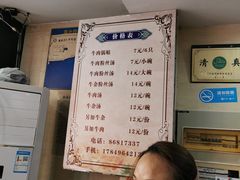 价格表
牛肉锅贴 7元/6只
牛肉粉丝汤 7元/小碗
牛肉粉丝汤 14元/大碗
牛杂粉丝汤 14元/碗
牛肉汤 12元/碗
牛杂汤 12元/碗
另加牛杂 12元/份
另加牛肉 12元/份
电话：86817337
手机：178496421
清真